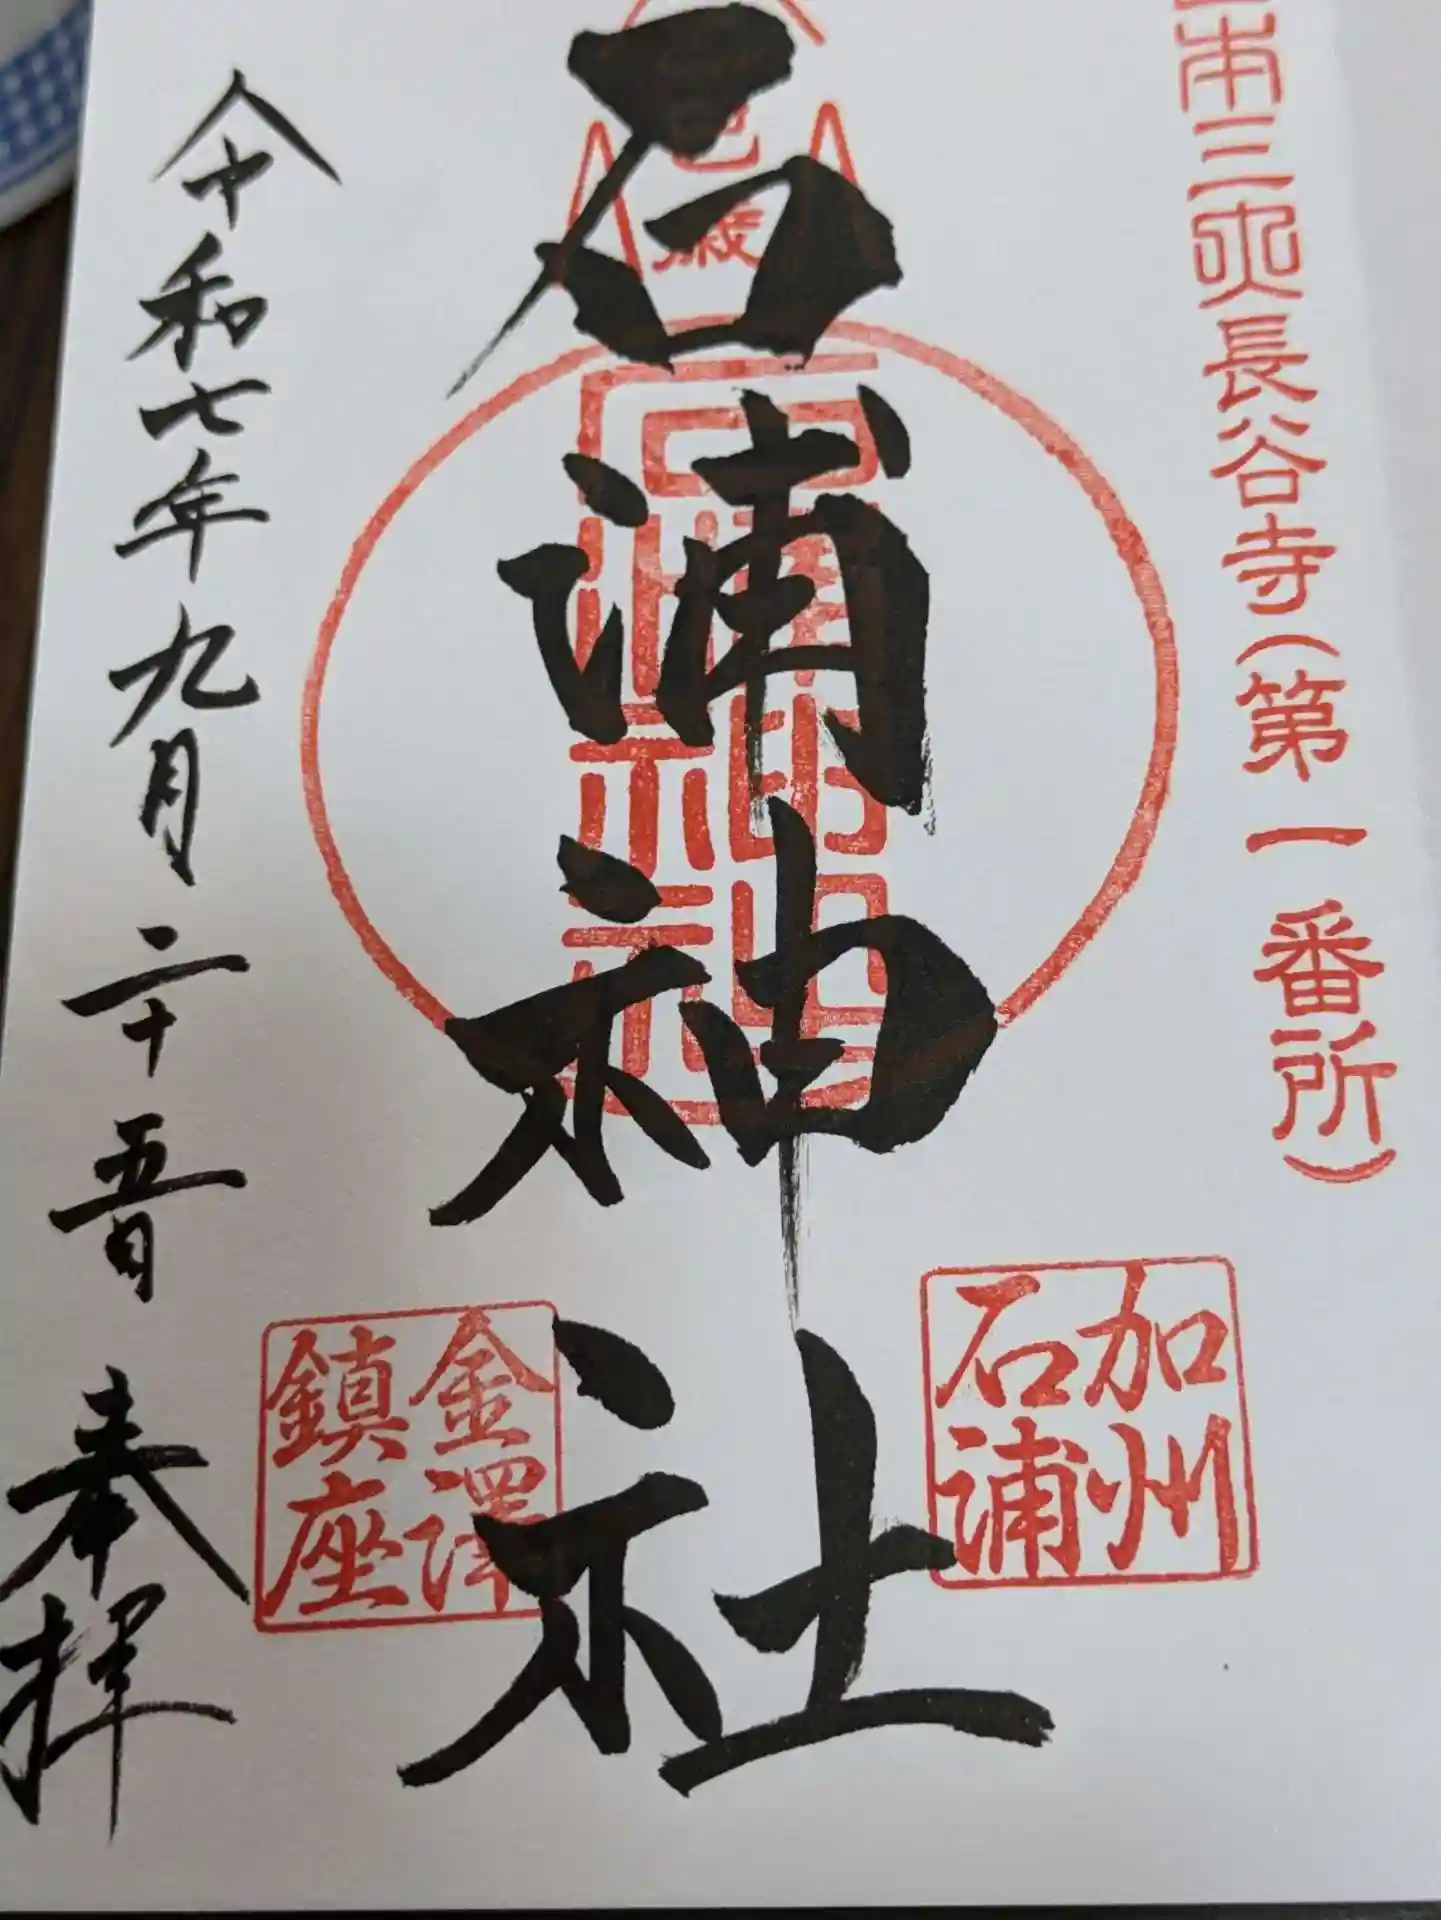 本三大長谷寺(第一番所)
加州
石浦
巳
歳
石浦神社
金澤
鎮座
令和七年九月二十五日
奉拝